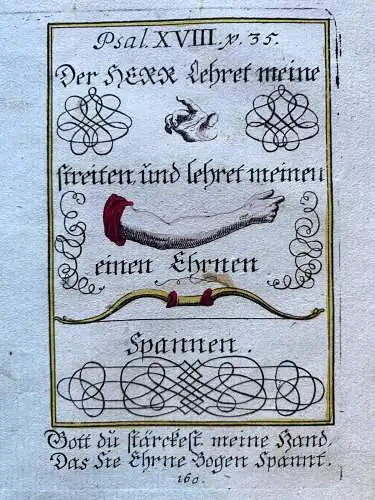 Psal. XVIII. v. 35.
Der HERR Lehret meine
streiten, und lehret meinen
einen Ehrnen
Spannen.
Gott du stärckest meine Hand,
Das Sie Ehrne Bogen Spannt.
160.